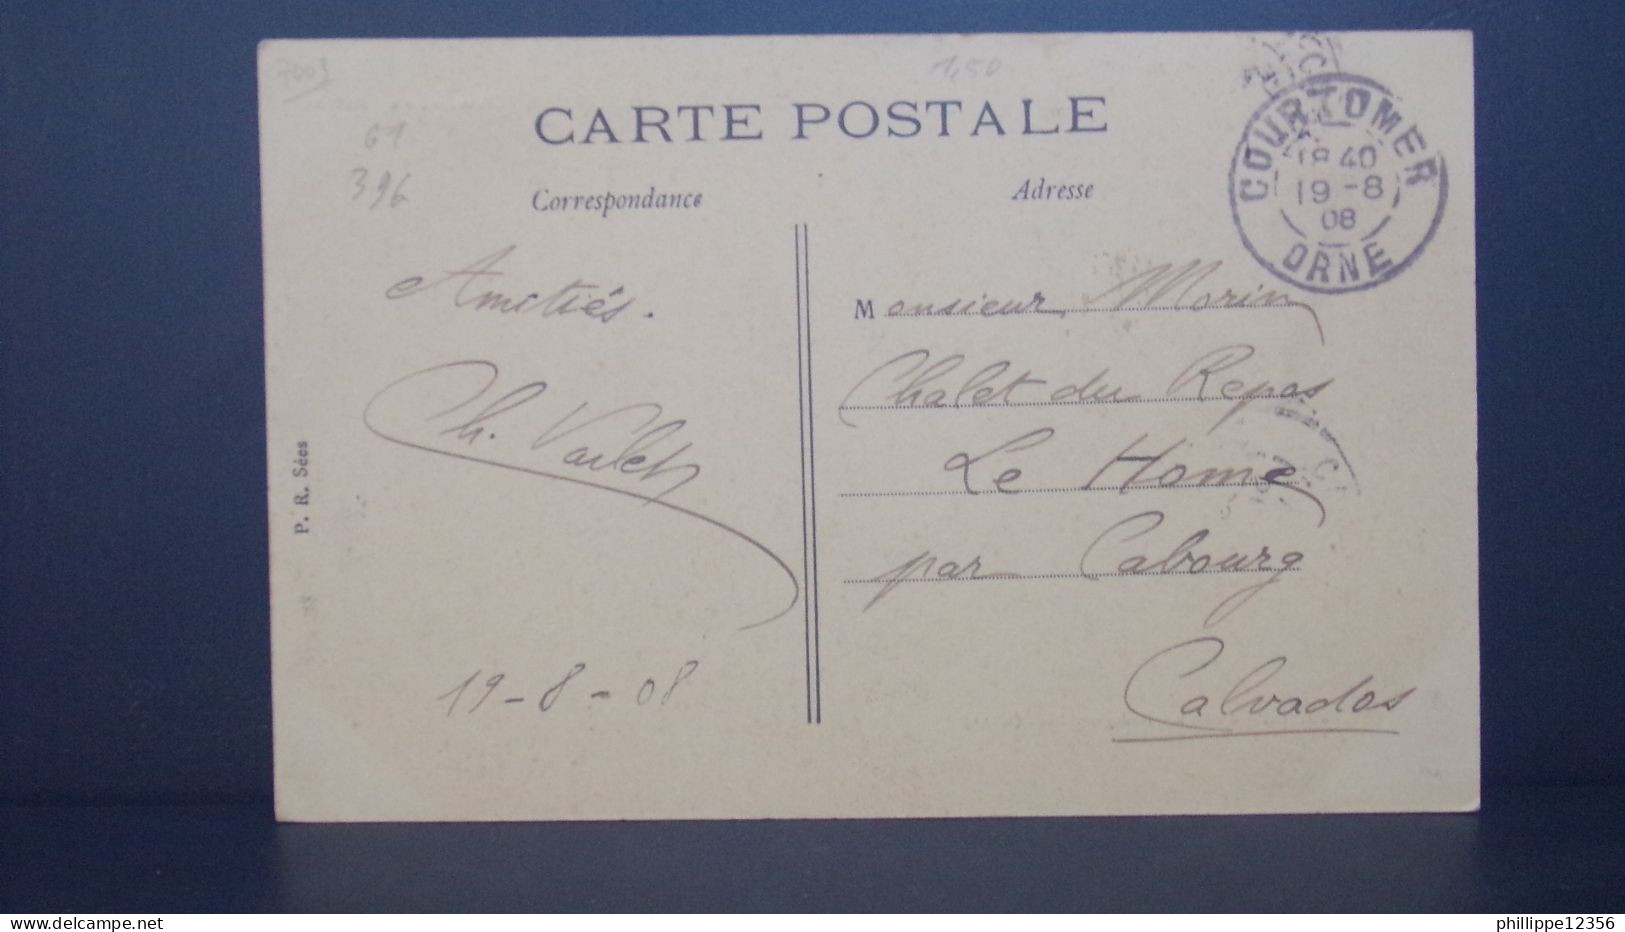 7003
1,50
CARTE POSTALE
61
396
Correspondance
Adresse
COURTOMER
18 40
19 - 8
08
ORNE
Amitiés.
Ch. Varlet
19 - 8 - 08
Monsieur Morin
Chalet du Repos
Le Home
par Cabourg
Calvados
P. R. Sées
www.delcampe.net
phillippe12356